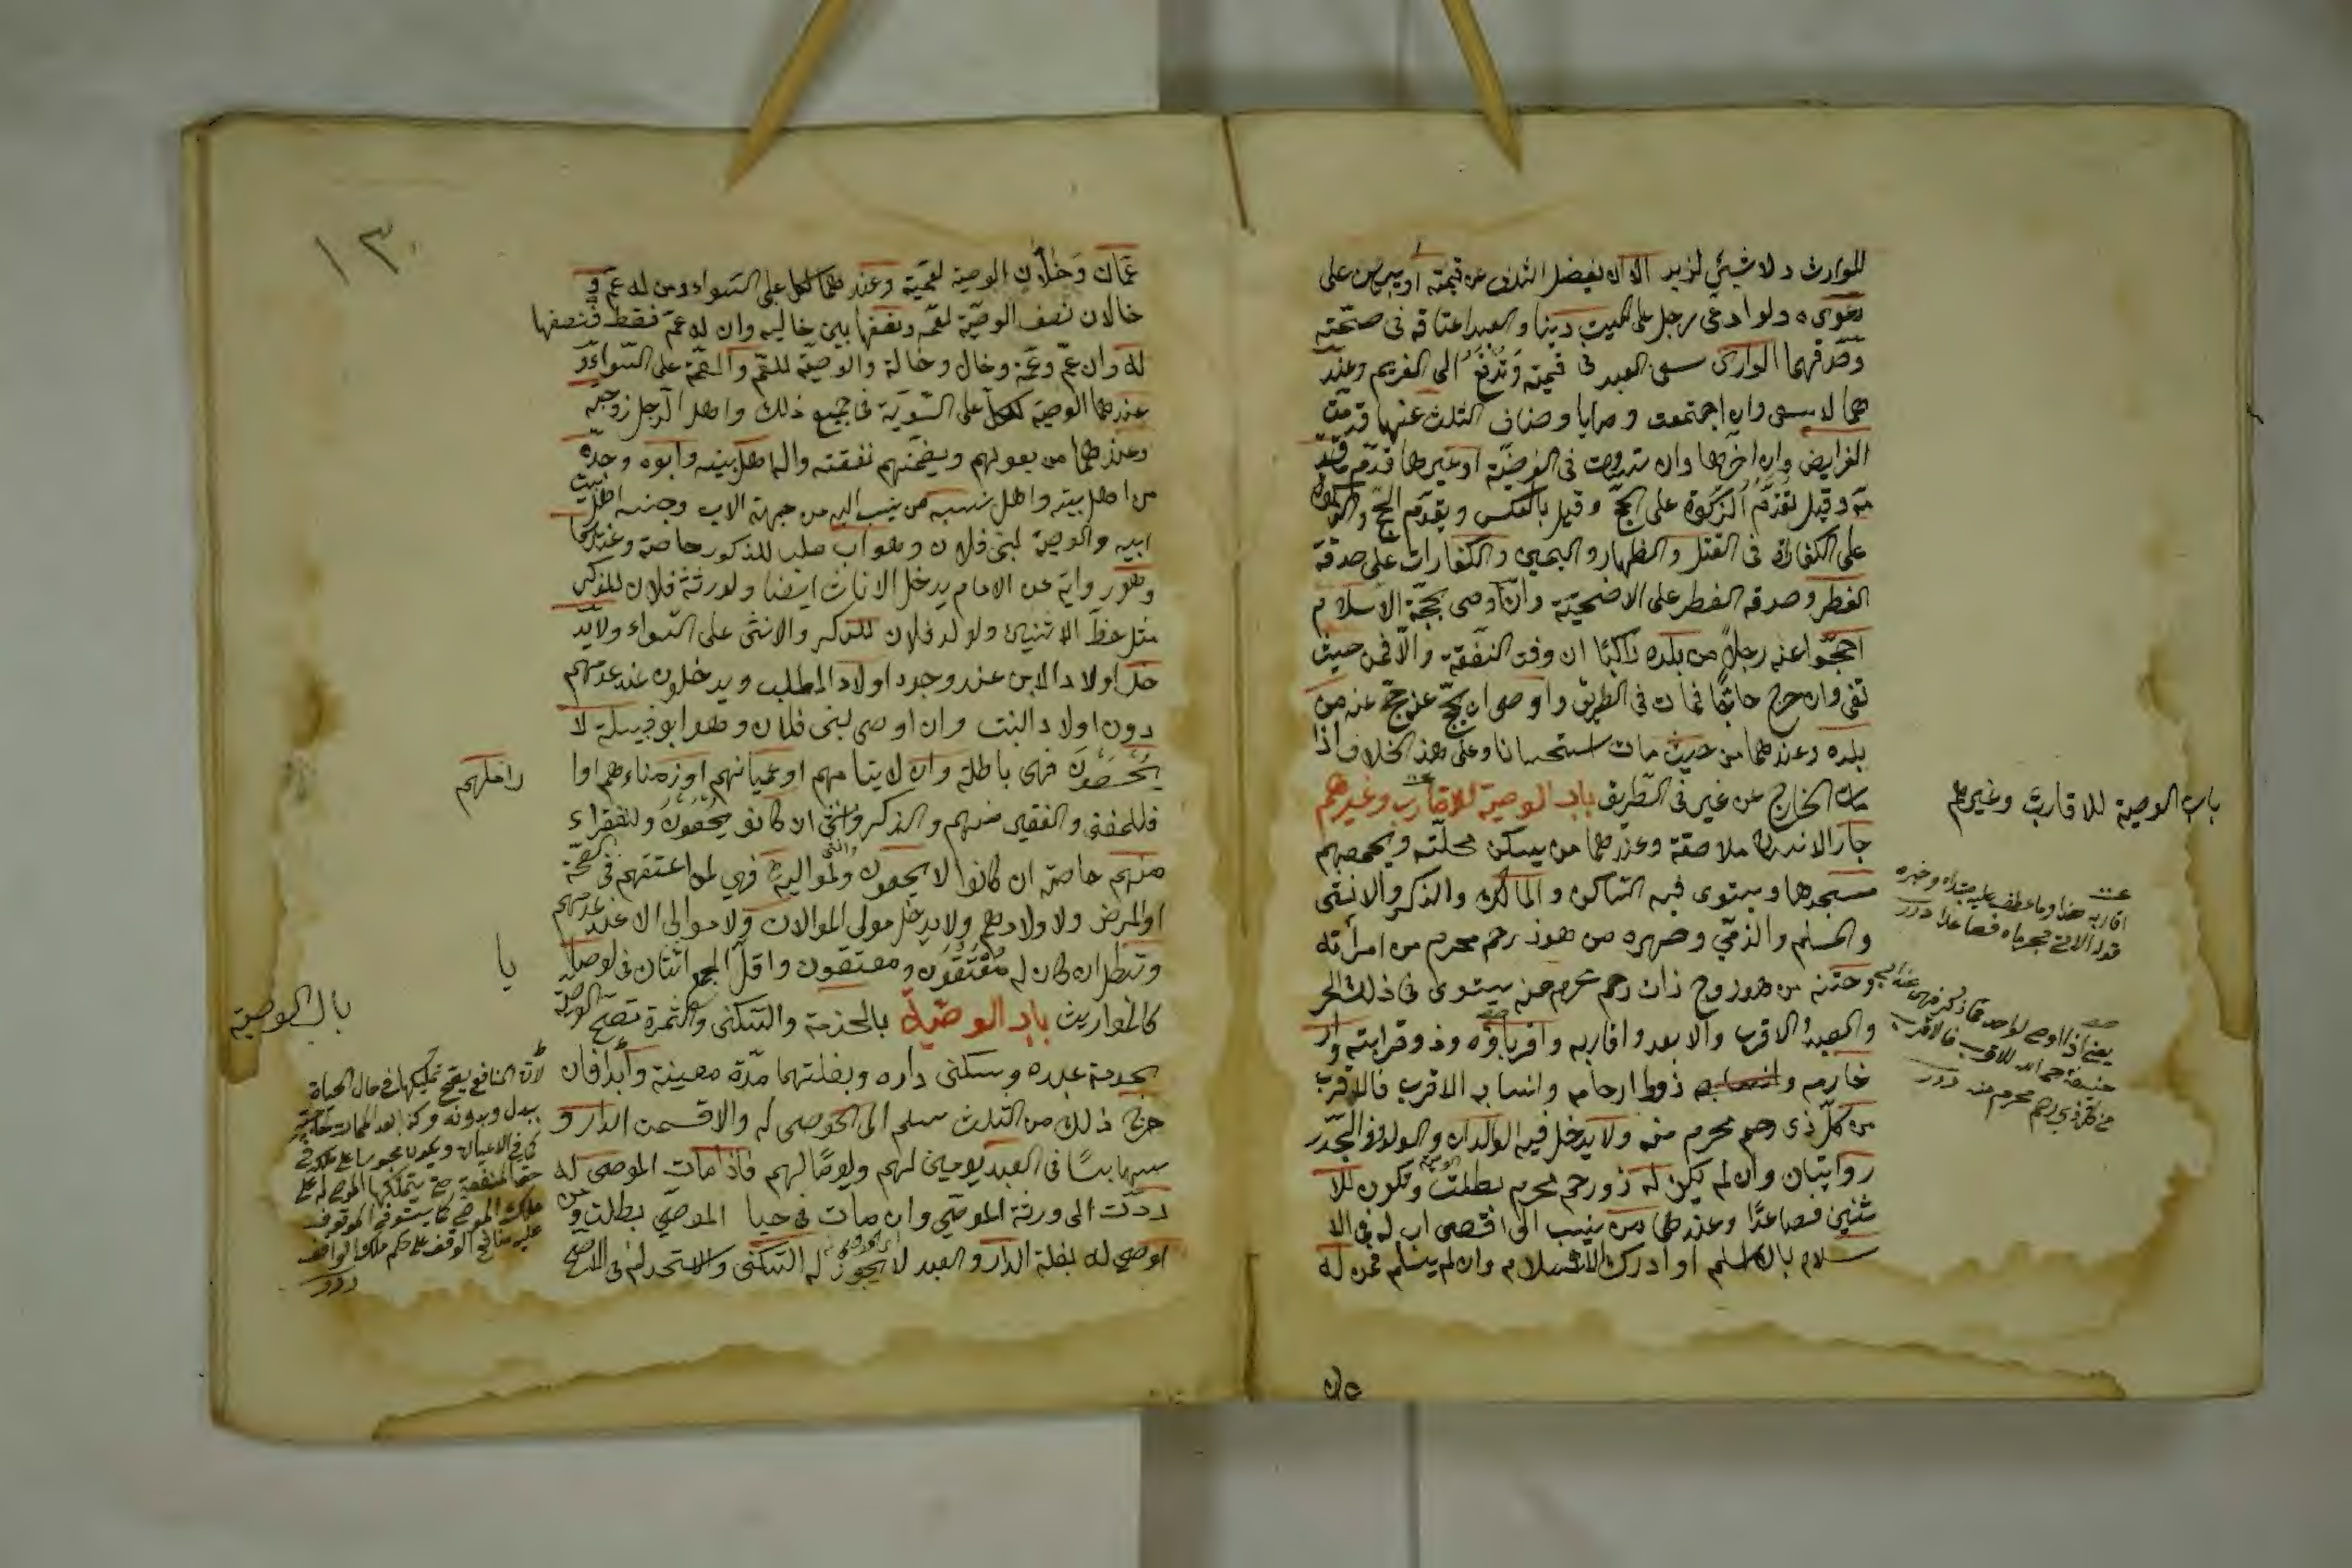 للوارث ولا شيئ لزيد الا ان يفضل الثلث عن قيمته او يبرهن على
دعوىه ولو ادعى رجل على الميت دينا والعبد اعتاقه فى صحّته
وصدقهما الوارث سعى العبد فى قيمته وتدفع الى الغريم وعند
هما لا يسعى وان اجتمعت وصايا وضاق الثلث عنها قدمت
الفرايض وان اخرها وان تساوت فى الفرضية او غيرها قدّم ما قدّ
مه وقيل تقدّم الزكوة على الحجّ وقيل بالعكس ويقدّم الحج والزكوة
على الكفارة فى القتل والظهار واليمين والكفارات على صدقة
الفطر وصدقة الفطر على الاضحيّة وان اوصى بحجّة الاسلام
احجّوا عنه رجلاً من بلده راكبًا ان وفت النفقة والّا فمن حيث
تفى وان خرج حاجًّا فمات فى الطريق واوصى ان يحجّ عنه حجّ عنه من
بلده وعندهما من حيث مات استحسانا وعلى هذا الخلاف اذا
مات الحاج عن غيره فى الطّريق باب الوصية للاقارب وغيرهم
جار الانسان ملاصقه وعندهما من يسكن محلّته ويجمعهم
مسجدها ويستوى فيه الساكن والمالك والذكر والانثى
والمسلم والذمّي وصهره من هو ذو رحم محرم من امرأته
وختنه من هو زوج ذات رحم محرم منه يستوى فى ذلك الحر
والعبد الاقرب والابعد واقاربه واقرباؤه وذو قرابته وار
حامه وانسابه ذووا ارحامه وانسابه الاقرب فالاقرب
من كلّ ذى رحم محرم منه ولا يدخل فيه الوالدان والولد وفى الجدّ
روايتان وان لم يكن له ذو رحم محرم بطلت وتكون للا
ثنين فصاعدًا وعندهما من ينسب الى اقصى اب له فى الا
سلام بان اسلم او ادرك الاسلام وان لم يسلم فمن له
باب الوصية للاقارب وغيرهم
اقاربه هذا وما عطف عليه مبتداء وخبره
قوله الاتى محرماه فصاعدا درر
يعنى اذا اوصى لواحد مما ذكر فهى عند ابى
حنيفة رحمه الله للاقرب فالاقرب
من كل ذى رحم محرم منه درر
عمان
١٣٠
عمّان وخالان الوصية لعمّيه وعندهما لكل على السواء ومن له عم و
خالان نصف الوصيّة لعمّه ونصفها بين خاليه وان له عم فقط فنصفها
له وان عمّ وعمّة وخال وخالة والوصيّة للعمّ والعمّة على السواء و
عندهما الوصيّة لكل على السّويّة فى جميع ذلك واهل الرجل زوجته
وعندهما من يعولهم ويضمّهم نفقته واله اهل بيته وابوه وجدّه
من اهل بيته واهل نسبه من ينسب اليه من جهة الاب وجنسه اهل بيت
ابيه والوصية لبنى فلان وهو اب صلب للذكور خاصة وعندهما
وهو رواية عن الامام يدخل الاناث ايضا ولورثة فلان للذكر
مثل حظّ الاثنين ولولد فلان للذكر والانثى على السّواء ولا يد
خل اولاد الابن عند وجود اولاد الصلب ويدخلون عند عدمهم
دون اولاد البنت وان اوصى لبنى فلان وهو ابو قبيلة لا
يحصون فهى باطلة وان لايتامهم او عميانهم او زمناءهم او ا
راملهم
فللغنى والفقير منهم والذكر والانثى ان كانوا يحصون وللفقراء
منهم خاصة ان كانوا لا يحصون ولمواليه فهي لمن اعتقهم فى الصحّة
او المرض ولاولادهم ولا يدخل مولى الموالات ولا موالى الا عند عدمهم
وتبطل ان كان له معتقون ومعتقون واقلّ الجمع اثنان فى الوصايا
كالمواريث باب الوصيّة بالخدمة والسكنى والثمرة تصحّ الوصيّة
بخدمة عبده وسكنى داره وبغلتهما مدّة معينة وأبدا فان
خرج ذلك من الثلث سلم الى الموصى له والا قسمت الدار و
يتهايئا فى العبد يومين لهم ويومًا لهم فاذا مات الموصى له
ردّت الى ورثة الموصي وان مات فى حياة الموصي بطلت ومن
اوصى له بغلة الدار والعبد لا يجوز له السكنى والاستخدام فى الاصحّ
يا
باب الوصية
لانّ المنافع يصح تمليكها فى حال الحياة
ببدل وبدونه وكذا بعد الممات لحاجته
كما فى الاعيان ويكون محبوسا على ملكه فى
حق المنفعة حتى يتملكها الموصى له على
ملك الموصى كما يستوفى الموقوف
عليه منافع الوقف على حكم ملك الواقف
درر